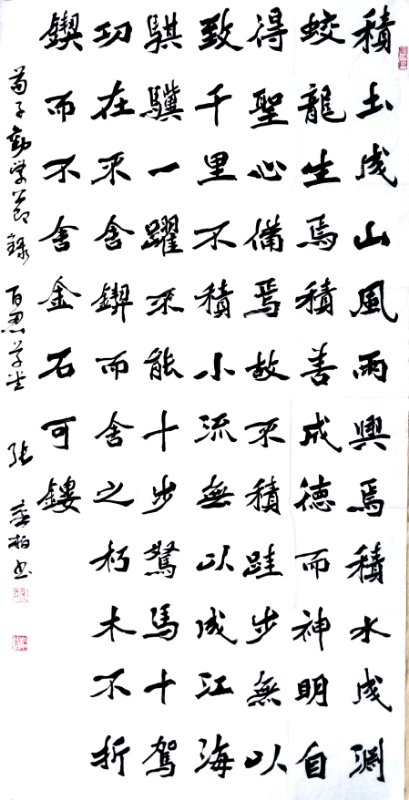 積土成山風雨興焉積水成淵
蛟龍生焉積善成德而神明自
得聖心備焉故不積跬步無以
致千里不積小流無以成江海
騏驥一躍不能十步駑馬十駕
功在不舍鍥而舍之朽木不折
鍥而不舍金石可鏤
荀子勸学節録 百忍草堂 張 柏书